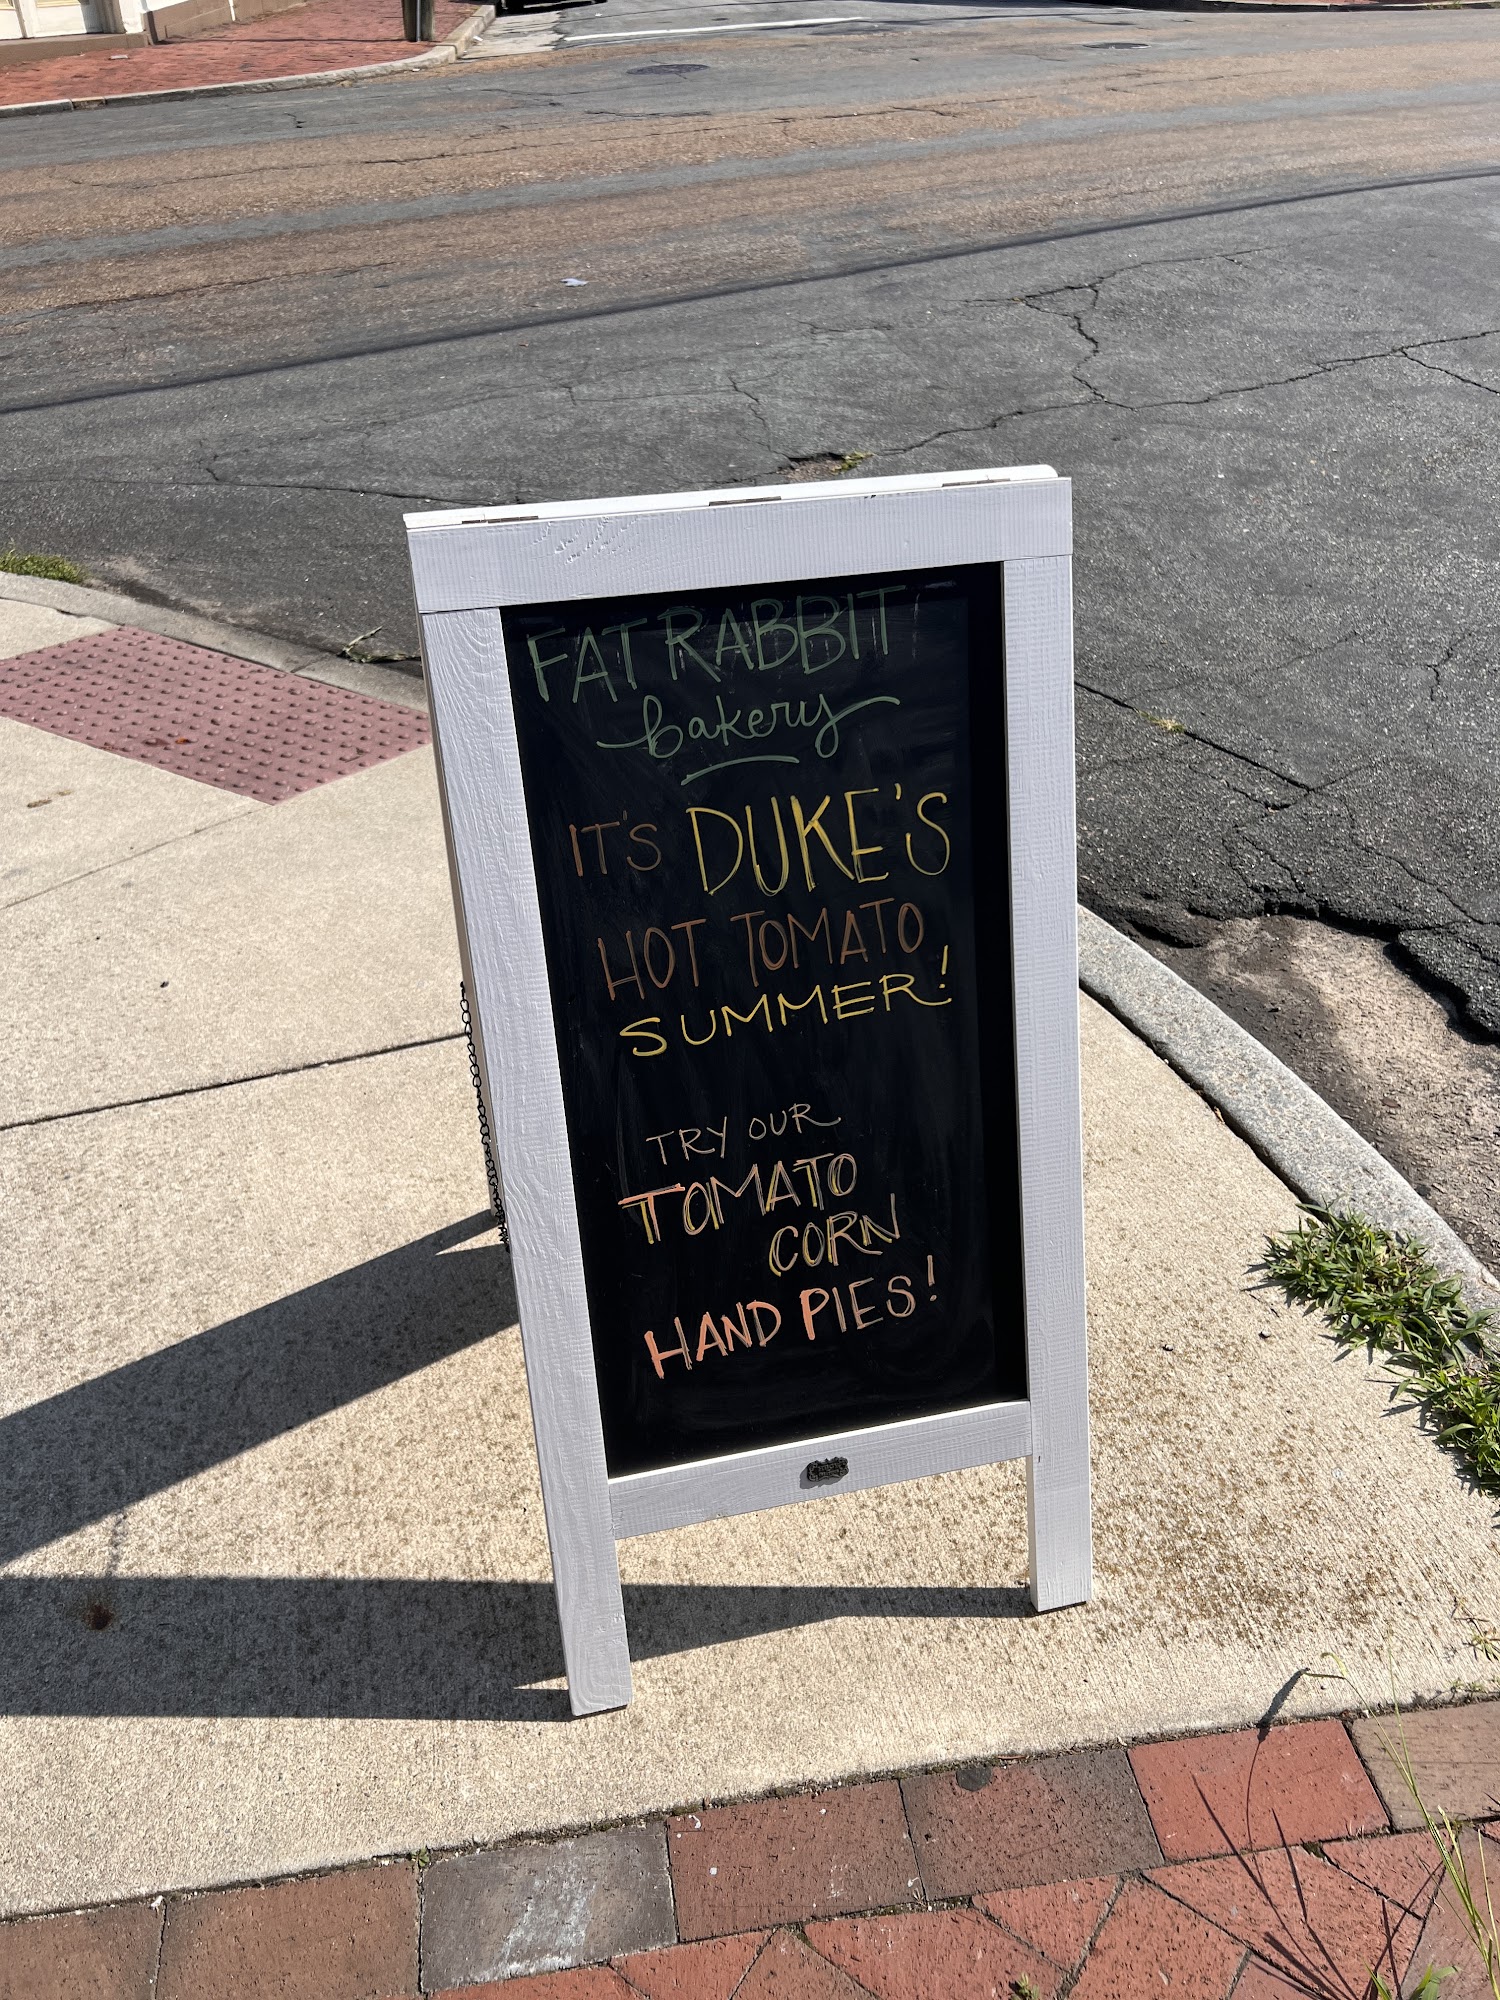 FAT RABBIT
bakery
IT'S DUKE'S
HOT TOMATO
SUMMER!
TRY OUR
TOMATO
CORN
HAND PIES!